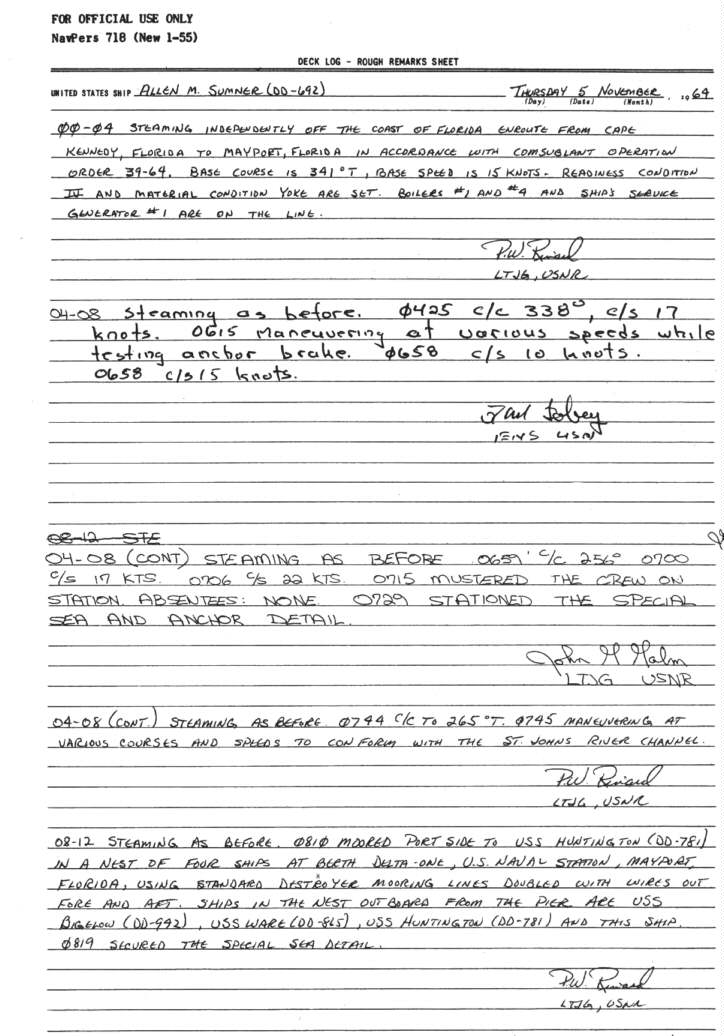 FOR OFFICIAL USE ONLY
NavPers 718 (New 1-55)
DECK LOG - ROUGH REMARKS SHEET
UNITED STATES SHIP ALLEN M. SUMNER (DD-692) THURSDAY 5 NOVEMBER, 1964
(Day) (Date) (Month)
ØØ-Ø4 STEAMING INDEPENDENTLY OFF THE COAST OF FLORIDA ENROUTE FROM CAPE
KENNEDY, FLORIDA TO MAYPORT, FLORIDA IN ACCORDANCE WITH COMSUBLANT OPERATION
ORDER 39-64. BASE COURSE IS 341°T, BASE SPEED IS 15 KNOTS. READINESS CONDITION
IV AND MATERIAL CONDITION YOKE ARE SET. BOILERS #1 AND #4 AND SHIP'S SERVICE
GENERATOR #1 ARE ON THE LINE.
P.W. 
LTJG, USNR
04-08 Steaming as before. Ø425 c/c 338°, c/s 17
knots. 0615 Maneuvering at various speeds while
testing anchor brake. Ø658 c/s 10 knots.
0658 c/s 15 knots.
ENS USN
08-12 STE
04-08 (CONT) STEAMING AS BEFORE 0659 C/C 256° 0700
C/S 17 KTS. 0706 C/S 22 KTS. 0715 MUSTERED THE CREW ON
STATION. ABSENTEES: NONE. 0729 STATIONED THE SPECIAL
SEA AND ANCHOR DETAIL.
John H Halm
LTJG USNR
04-08 (CONT.) STEAMING AS BEFORE. Ø744 C/C TO 265°T. Ø745 MANEUVERING AT
VARIOUS COURSES AND SPEEDS TO CONFORM WITH THE ST. JOHNS RIVER CHANNEL.
P.W. 
LTJG, USNR
08-12 STEAMING AS BEFORE. Ø81Ø MOORED PORT SIDE TO USS HUNTINGTON (DD-781)
IN A NEST OF FOUR SHIPS AT BERTH DELTA-ONE, U.S. NAVAL STATION, MAYPORT,
FLORIDA, USING STANDARD DESTROYER MOORING LINES DOUBLED WITH WIRES OUT
FORE AND AFT. SHIPS IN THE NEST OUTBOARD FROM THE PIER ARE USS
BIGELOW (DD-942), USS WARE (DD-865), USS HUNTINGTON (DD-781) AND THIS SHIP.
Ø819 SECURED THE SPECIAL SEA DETAIL.
P.W. 
LTJG, USNR